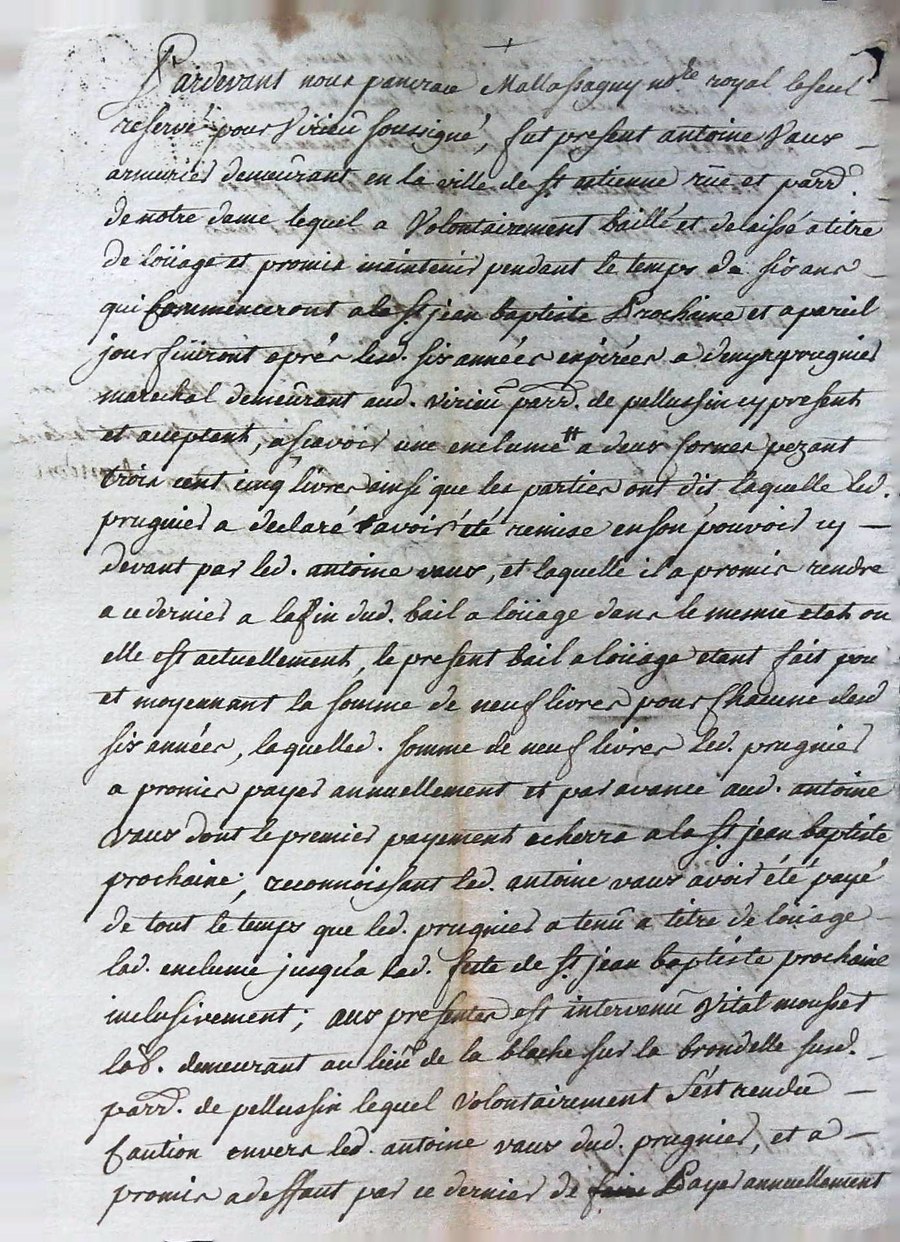 Pardevant nous pancrace Mallassagny no.re royal le seul
reservé pour Virieu soussigné, fut present antoine Vaux
armurier demeurant en la ville de St etienne rüe et parr.
de notre dame lequel a Volontairement baillé et delaissé a titre
de loüage et promis maintenir pendant le temps de six ans
qui Commenceront a la St jean baptiste Prochaine et a pareil
jour finiront aprés lesd. six années expirées a prugnier
marechal demeurant aud. virieu parr. de pellussin cy present
et acceptent, a scavoir une enclume # a deux cornes pezant
trois cent cinq livres ainsi que les parties ont dit laquelle led.
prugnier a declaré avoir été remise en son pouvoir cy
devant par led. antoine vaux, et laquelle il a promis rendre
a ce dernier a la fin dud. bail a loüage dans le mesme etat ou
elle est actuellement, le present bail a loüage etant fait pour
et moyennant la somme de neuf livres pour Chacune desd
six années, laquelled. somme de neuf livres led. prugnier
a promis payer annuellement et par avance aud. antoine
vaux dont le premier payement echerra a la St jean baptiste
prochaine; reconnoissant led. antoine vaux avoir été payé
de tout le temps que led. prugnier a tenu a titre de loüage
lad. enclume jusqu'a lad. fete de St jean baptiste prochaine
inclusivement; aux presentes est intervenu Vital mousset
lab. demeurant au lieu de la blache sur la brondelle susd.
parr. de pellussin lequel Volontairement s'est rendu
Caution envers led. antoine vaux dud. prugnier, et a
promis a deffaut par ce dernier de faire Payer annuellement